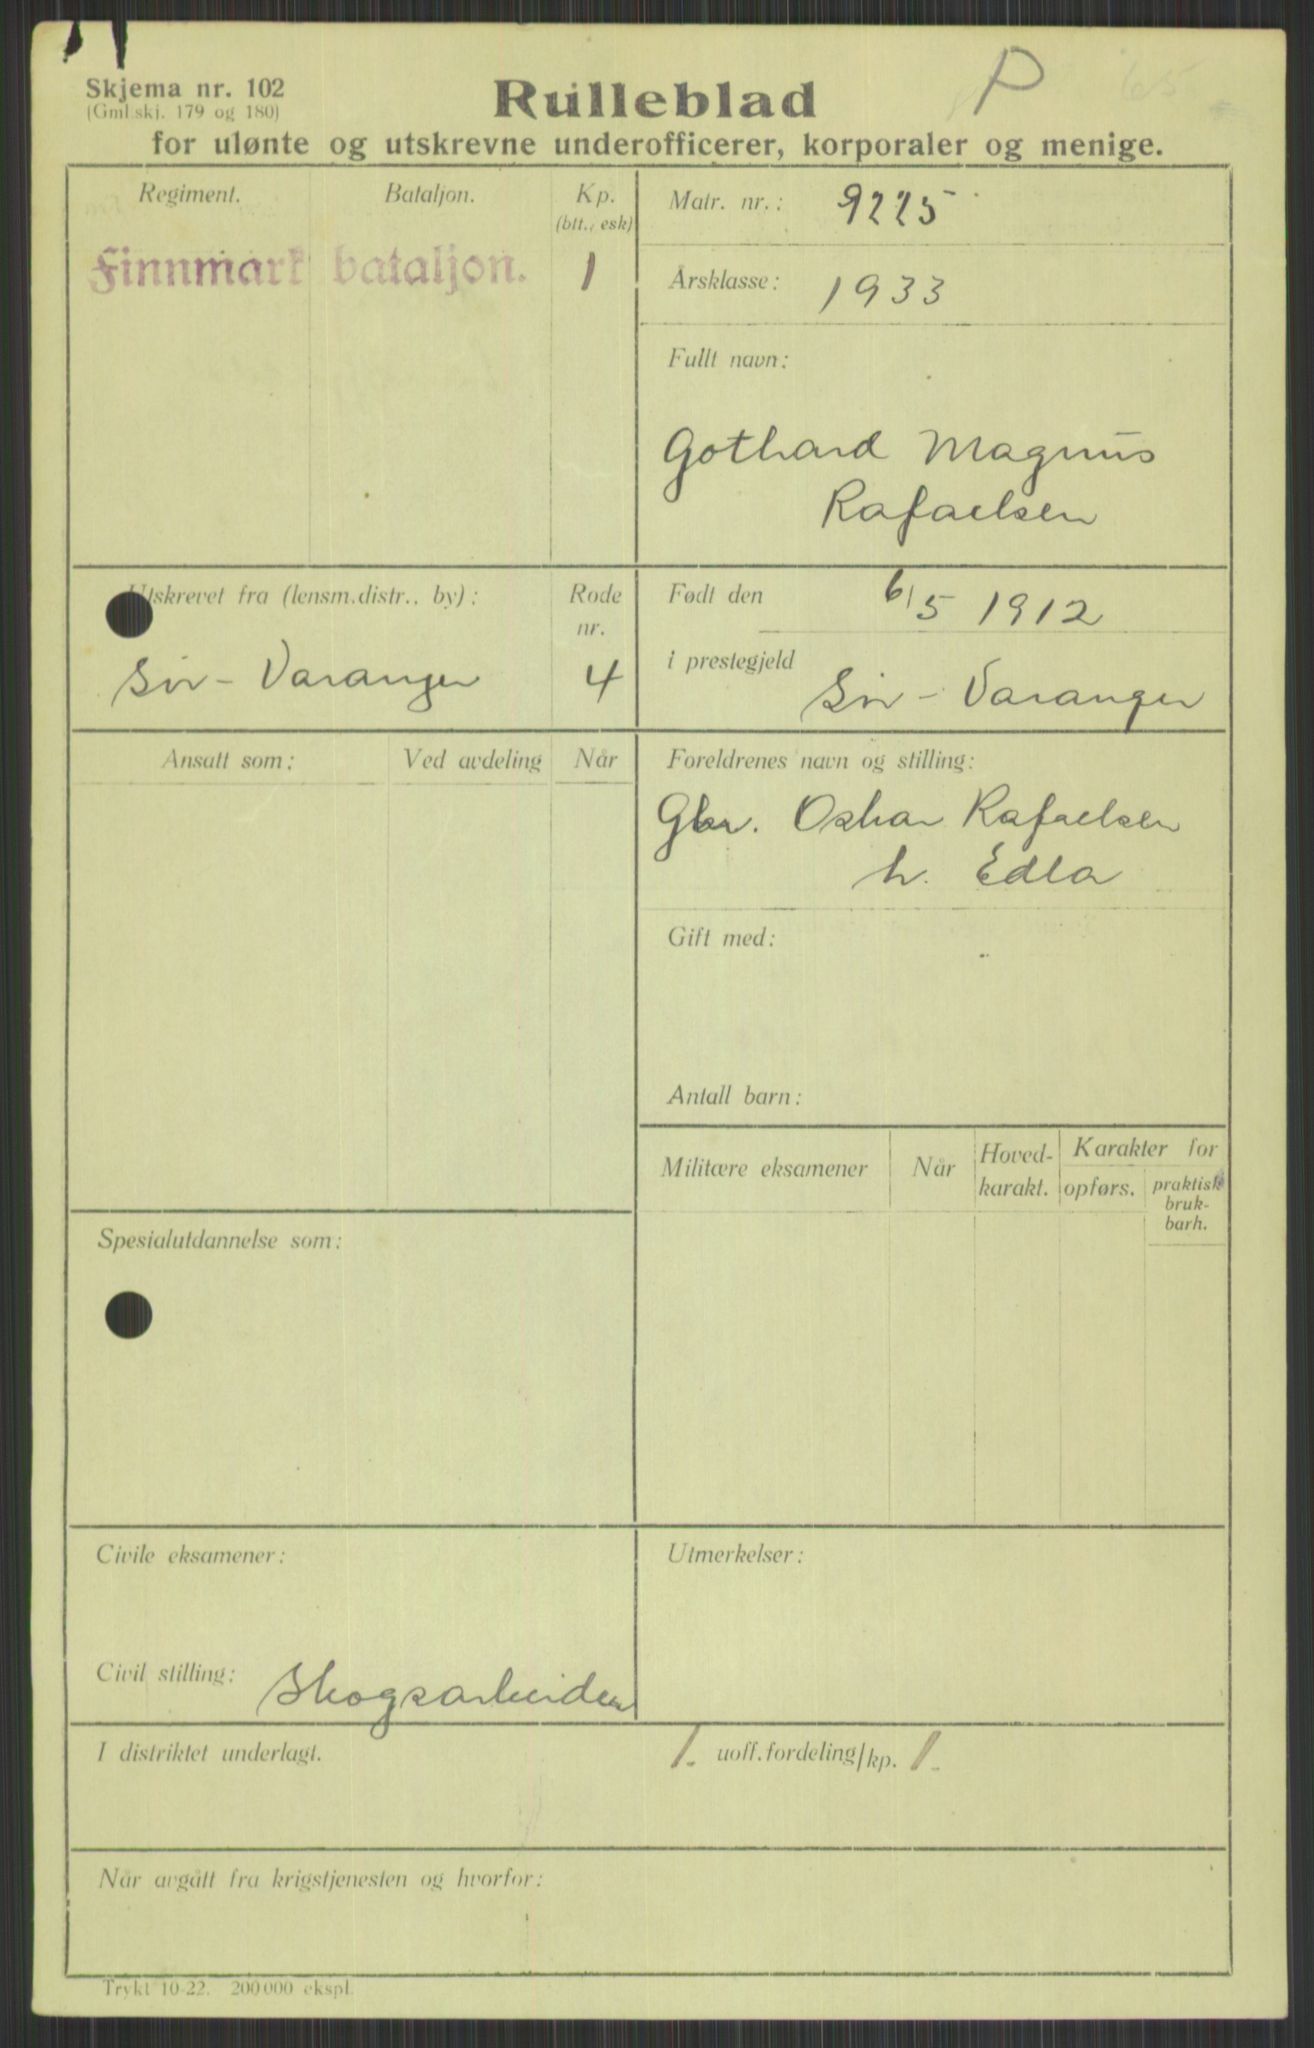 Skjema nr. 102
(Gml.skj. 179 og 180)
Rulleblad
P
65
for ulønte og utskrevne underofficerer, korporaler og menige.
Regiment.
Bataljon.
Kp.
(btt., esk)
Finnmark bataljon.
1
Matr. nr.: 9225
Årsklasse: 1933
Fullt navn:
Gothard Magnus
Rafaelsen
Utskrevet fra (lensm.distr., by):
Rode
nr.
Sør-Varanger
4
Født den 6/5 1912
i prestegjeld
Sør-Varanger
Ansatt som:
Ved avdeling
Når
Foreldrenes navn og stilling:
Gbr. Oskar Rafaelsen
h. Edla
Gift med:
Antall barn:
Militære eksamener
Når
Hoved-
karakt.
Karakter for
opførs.
praktisk
bruk-
barh.
Spesialutdannelse som:
Civile eksamener:
Utmerkelser:
Civil stilling: Skogsarbeider
I distriktet underlagt.
1. uoff.fordeling/kp. 1.
Når avgått fra krigstjenesten og hvorfor:
Trykt 10-22. 200 000 ekspl.